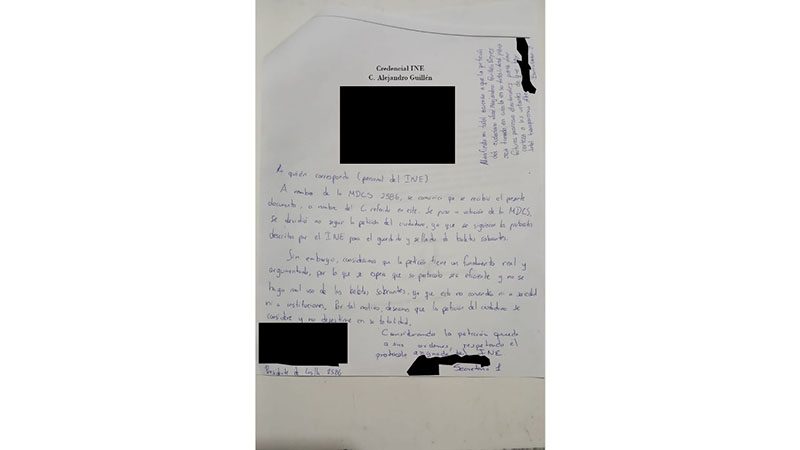 Credencial INE
C. Alejandro Guillén
A quién corresponda (personal del INE)
A nombre de la MDCS 2586, se comunica que se recibió el presente
documento, a nombre del C. referido en este. Se puso a votación de la MDCS,
se decidió no seguir la petición del ciudadano, ya que se siguieron los protocolos
descritos por el INE para el guardado y sellado de boletas sobrantes.
Sin embargo, consideramos que la petición tiene un fundamento real y
argumentado, por lo que se espera que su protocolo sea eficiente y no se
haga mal uso de las boletas sobrantes, ya que esto no convendría ni a sociedad
ni a instituciones. Por tal motivo, deseamos que la petición del ciudadano se
considere y no desestime en su totalidad.
Considerando la petición quedo
a sus ordenes, respetando el
protocolo asignado del INE
Presidente de casilla 2586
Secretario 1